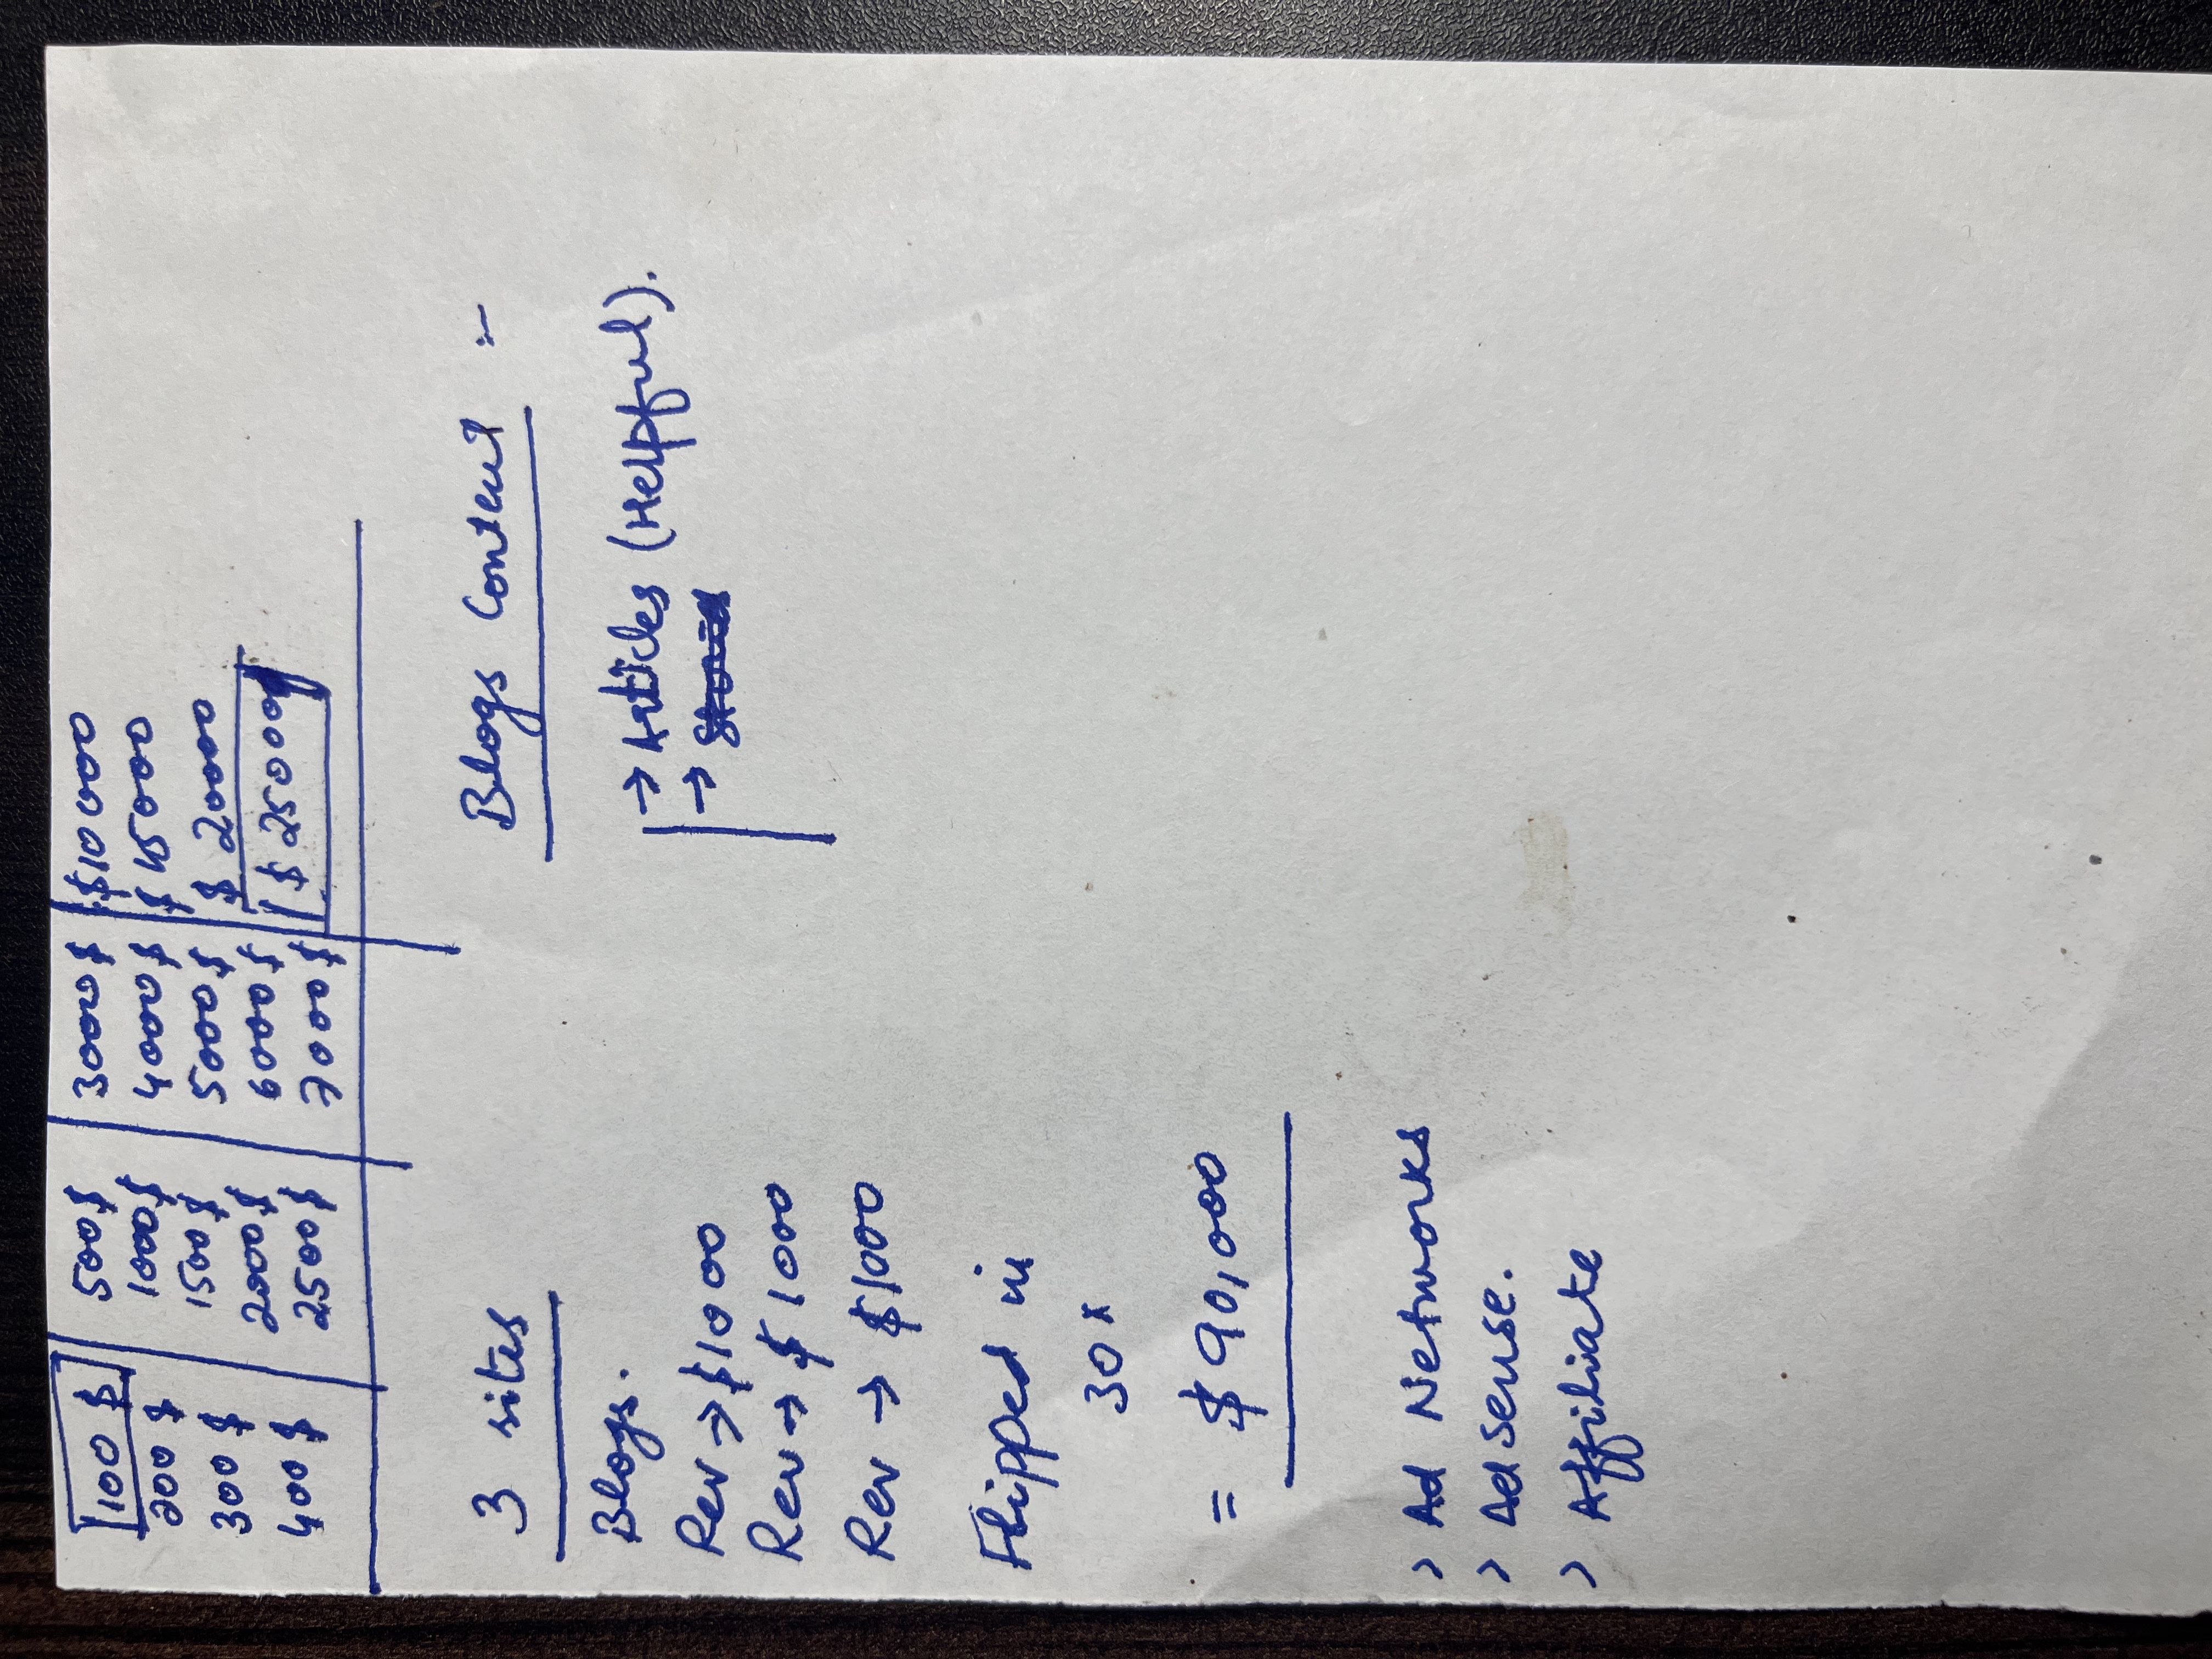 100 $
200 $
300 $
400 $
500 $
1000 $
1500 $
2000 $
2500 $
3000 $
4000 $
5000 $
6000 $
7000 $
$10000
$ 15000
$ 20000
$ 25000
3 sites
Blogs.
Rev → $1000
Rev → $1000
Rev → $1000
Flipped in
30x
= $ 90,000
> Ad Networks
> Adsense.
> Affiliate
Blogs Content :-
→ Articles (Helpful).
→